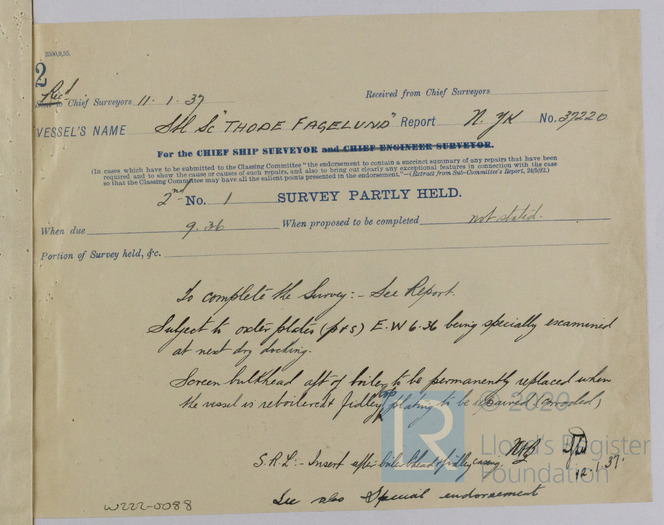 3500,9,35.
2
Rec'd
Sent to Chief Surveyors 11.1.37 Received from Chief Surveyors
VESSEL'S NAME Stl Sc "THODE FAGELUND" Report N. Yk No. 37220
For the CHIEF SHIP SURVEYOR and CHIEF ENGINEER SURVEYOR.
(In cases which have to be submitted to the Classing Committee "the endorsement to contain a succinct summary of any repairs that have been
required and to show the cause or causes of such repairs, and also to bring out clearly any exceptional features in connection with the case
so that the Classing Committee may have all the salient points presented in the endorsement."—(Extract from Sub-Committee's Report, 24/5/92.)
2nd No. 1 SURVEY PARTLY HELD.
When due 9.36 When proposed to be completed not stated.
Portion of Survey held, &c.
To complete the Survey:- See Report.
Subject to oxter plates (p&s) E.W 6.36 being specially examined
at next dry docking.
Screen bulkhead aft of boiler to be permanently replaced when
the vessel is reboilered & fidley top plating to be repaired (corroded)
S.R.L:- Insert after boiler bhead & fidley casing.
12.1.37.
See also Special endorsement
W222-0088
© 2020
LR
Lloyd's Register
Foundation